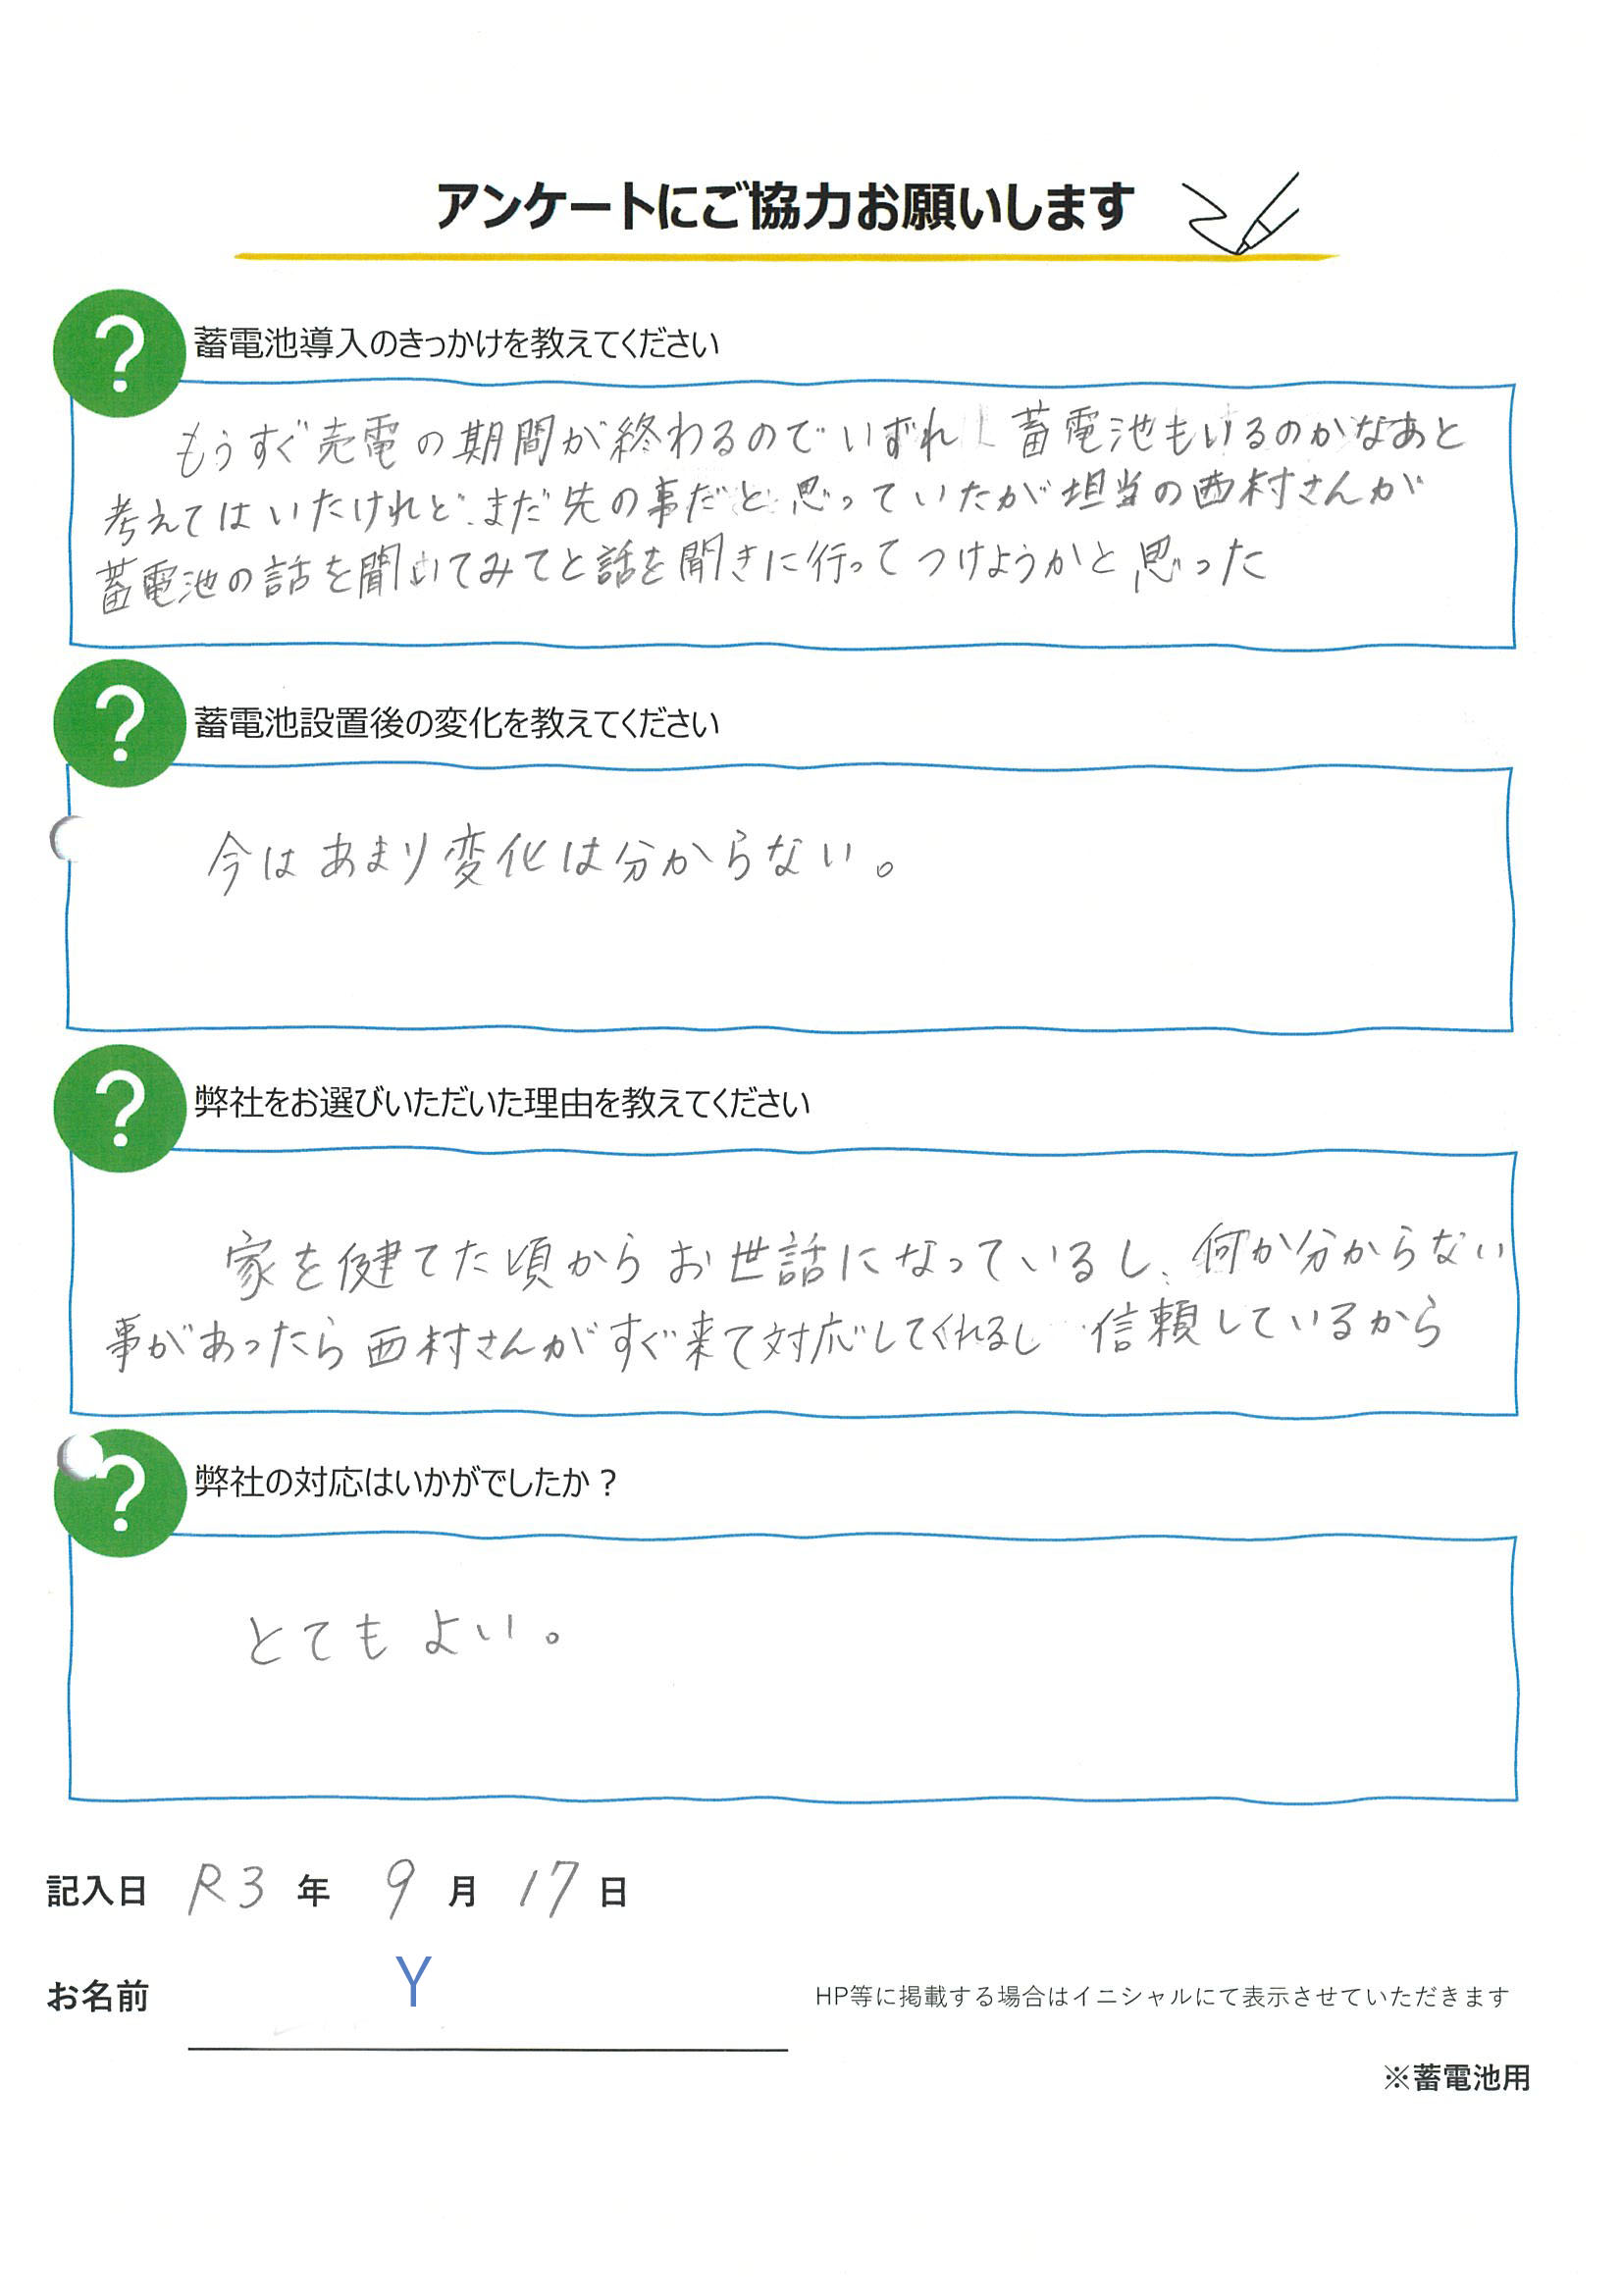 アンケートにご協力お願いします
蓄電池導入のきっかけを教えてください
もうすぐ売電の期間が終わるのでいずれ 蓄電池もいるのかなあと
考えてはいたけれど、まだ先の事だと思っていたが担当の西村さんが
蓄電池の話を聞いてみてと話を聞きに行ってつけようかと思った
蓄電池設置後の変化を教えてください
今はあまり変化は分からない。
弊社をお選びいただいた理由を教えてください
家を健てた頃からお世話になっているし、何か分からない
事があったら西村さんがすぐ来て対応してくれるし 信頼しているから
弊社の対応はいかがでしたか？
とてもよい。
記入日 R3 年 9 月 17 日
お名前 Y HP等に掲載する場合はイニシャルにて表示させていただきます
※蓄電池用